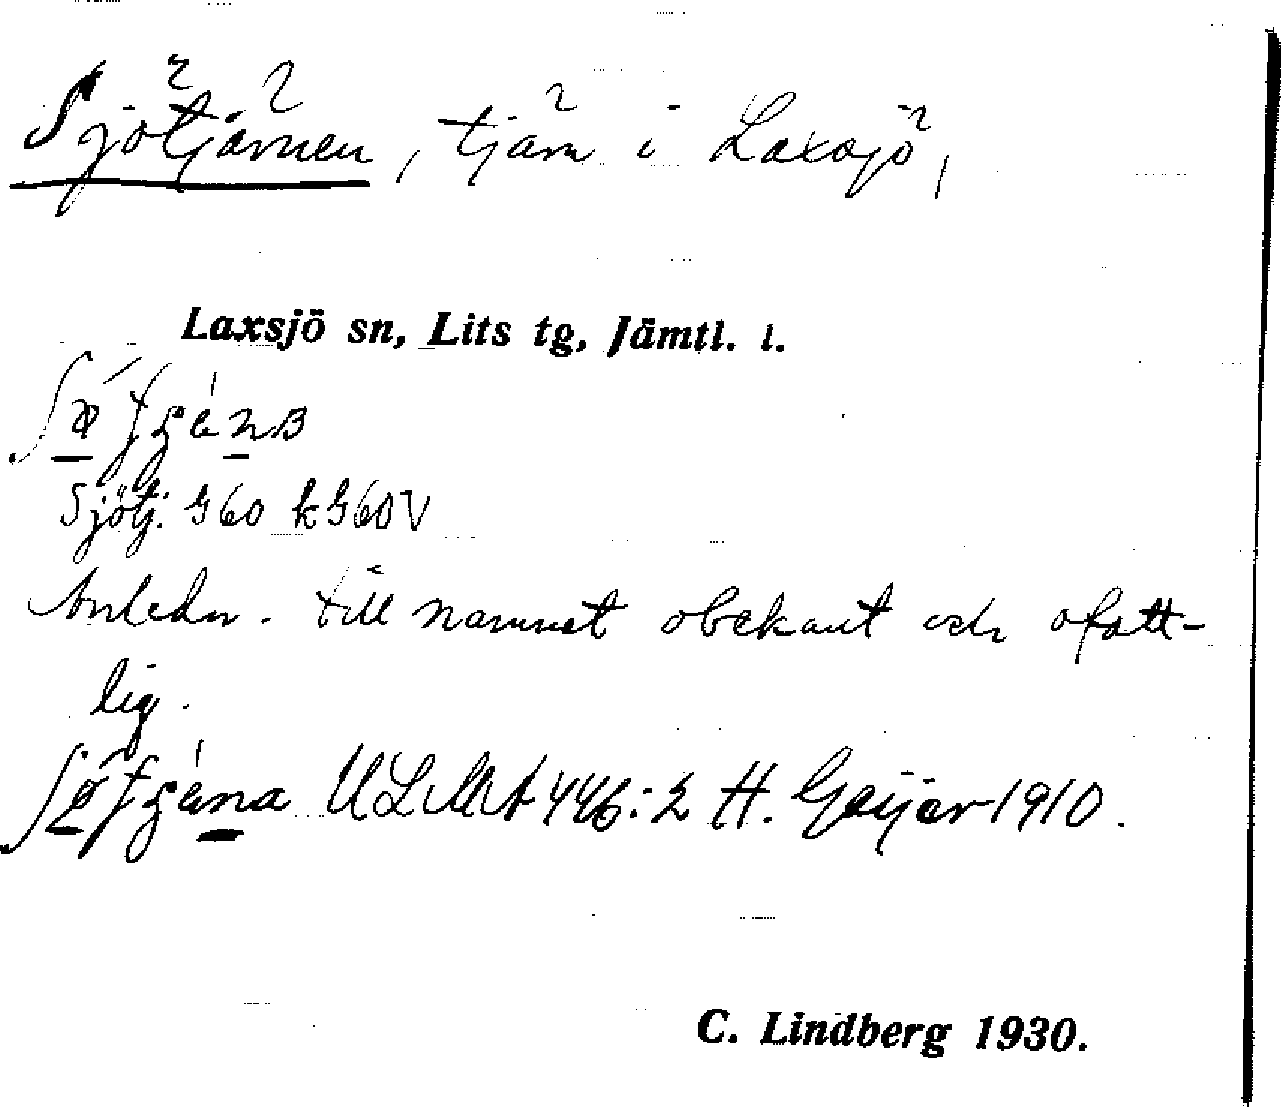 Sjötjärnen, tjärn i Laxsjö,
Laxsjö sn, Lits tg, Jämtl. l.
Sjötj. G60 kG60V
Anledn. till namnet obekant och ofatt-
lig.
ULMA 446:2 H. Geijer 1910.
C. Lindberg 1930.